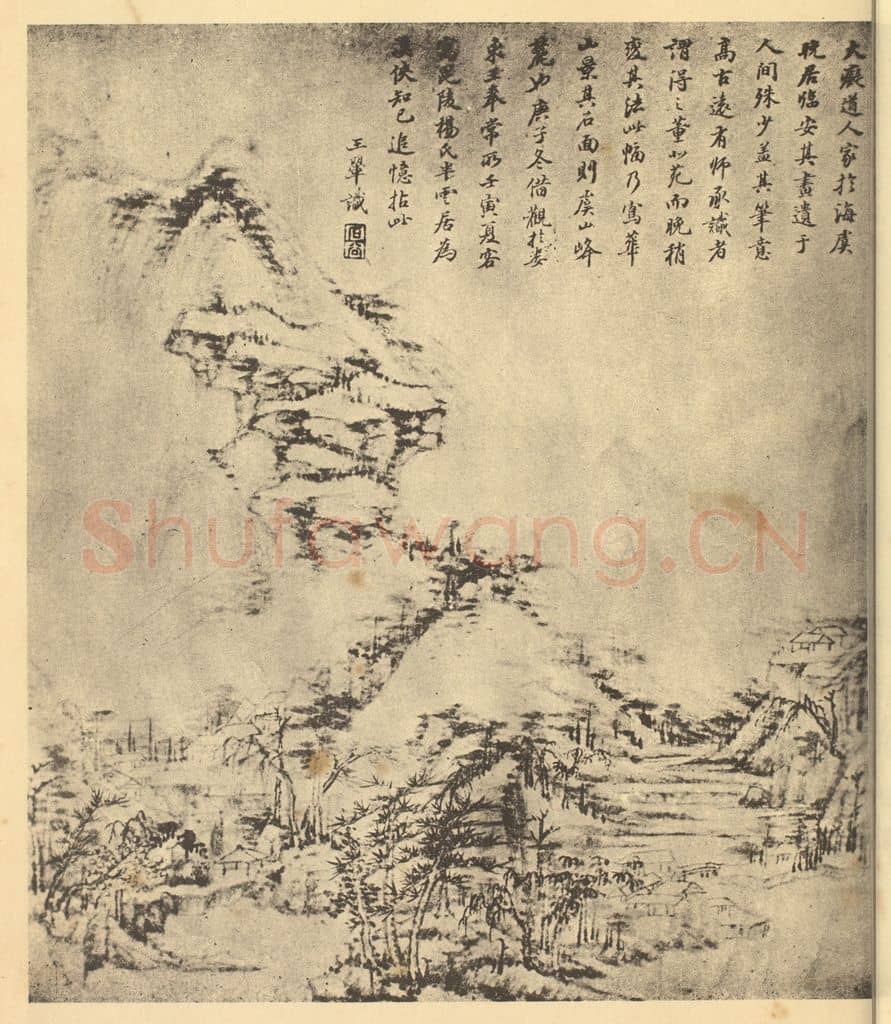 大癡道人家於海虞
晚居臨安其畫遺于
人间殊少盖其筆意
髙古遠有师承識者
謂得之董北苑而晚稍
變其法此幅乃寫華
山景其石面則虞山峰
麓也庚子冬借觀於娄
東王奉常所壬寅夏客
毘陵楊氏半雲居為
漢侠知己追憶拈此
王翬識
石谷
Shufawang.CN